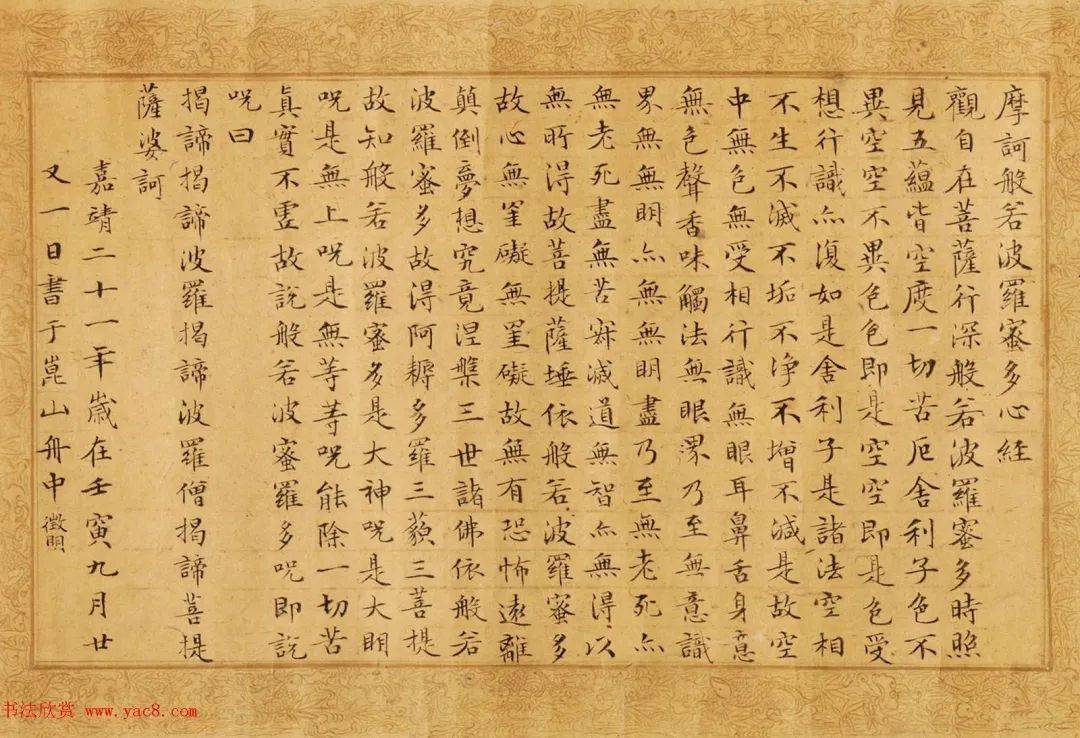 摩訶般若波羅蜜多心経
觀自在菩薩行深般若波羅蜜多時照
見五蘊皆空度一切苦厄舍利子色不
異空空不異色色即是空空即是色受
想行識亦復如是舍利子是諸法空相
不生不滅不垢不净不增不減是故空
中無色無受相行識無眼耳鼻舌身意
無色聲香味觸法無眼界乃至無意識
界無無明亦無無明盡乃至無老死亦
無老死盡無苦寂滅道無智亦無得以
無所得故菩提薩埵依般若波羅蜜多
故心無罣礙無罣礙故無有恐怖遠離
顛倒夢想究竟涅槃三世諸佛依般若
波羅蜜多故得阿耨多羅三藐三菩提
故知般若波羅蜜多是大神呪是大明
呪是無上呪是無等等呪能除一切苦
真實不虛故說般若波蜜羅多呪即說
呪曰
揭諦揭諦波羅揭諦波羅僧揭諦菩提
薩婆訶
嘉靖二十一年歲在壬寅九月廿
又一日書于崑山舟中 徵明
书法欣赏 www.yac8.com